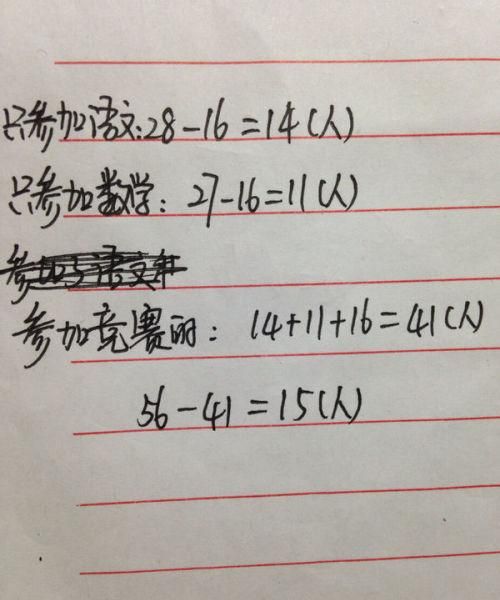 只参加语文:28-16=14(人)
只参加数学：27-16=11(人)
参加竞赛的：14+11+16=41(人)
56-41=15(人)